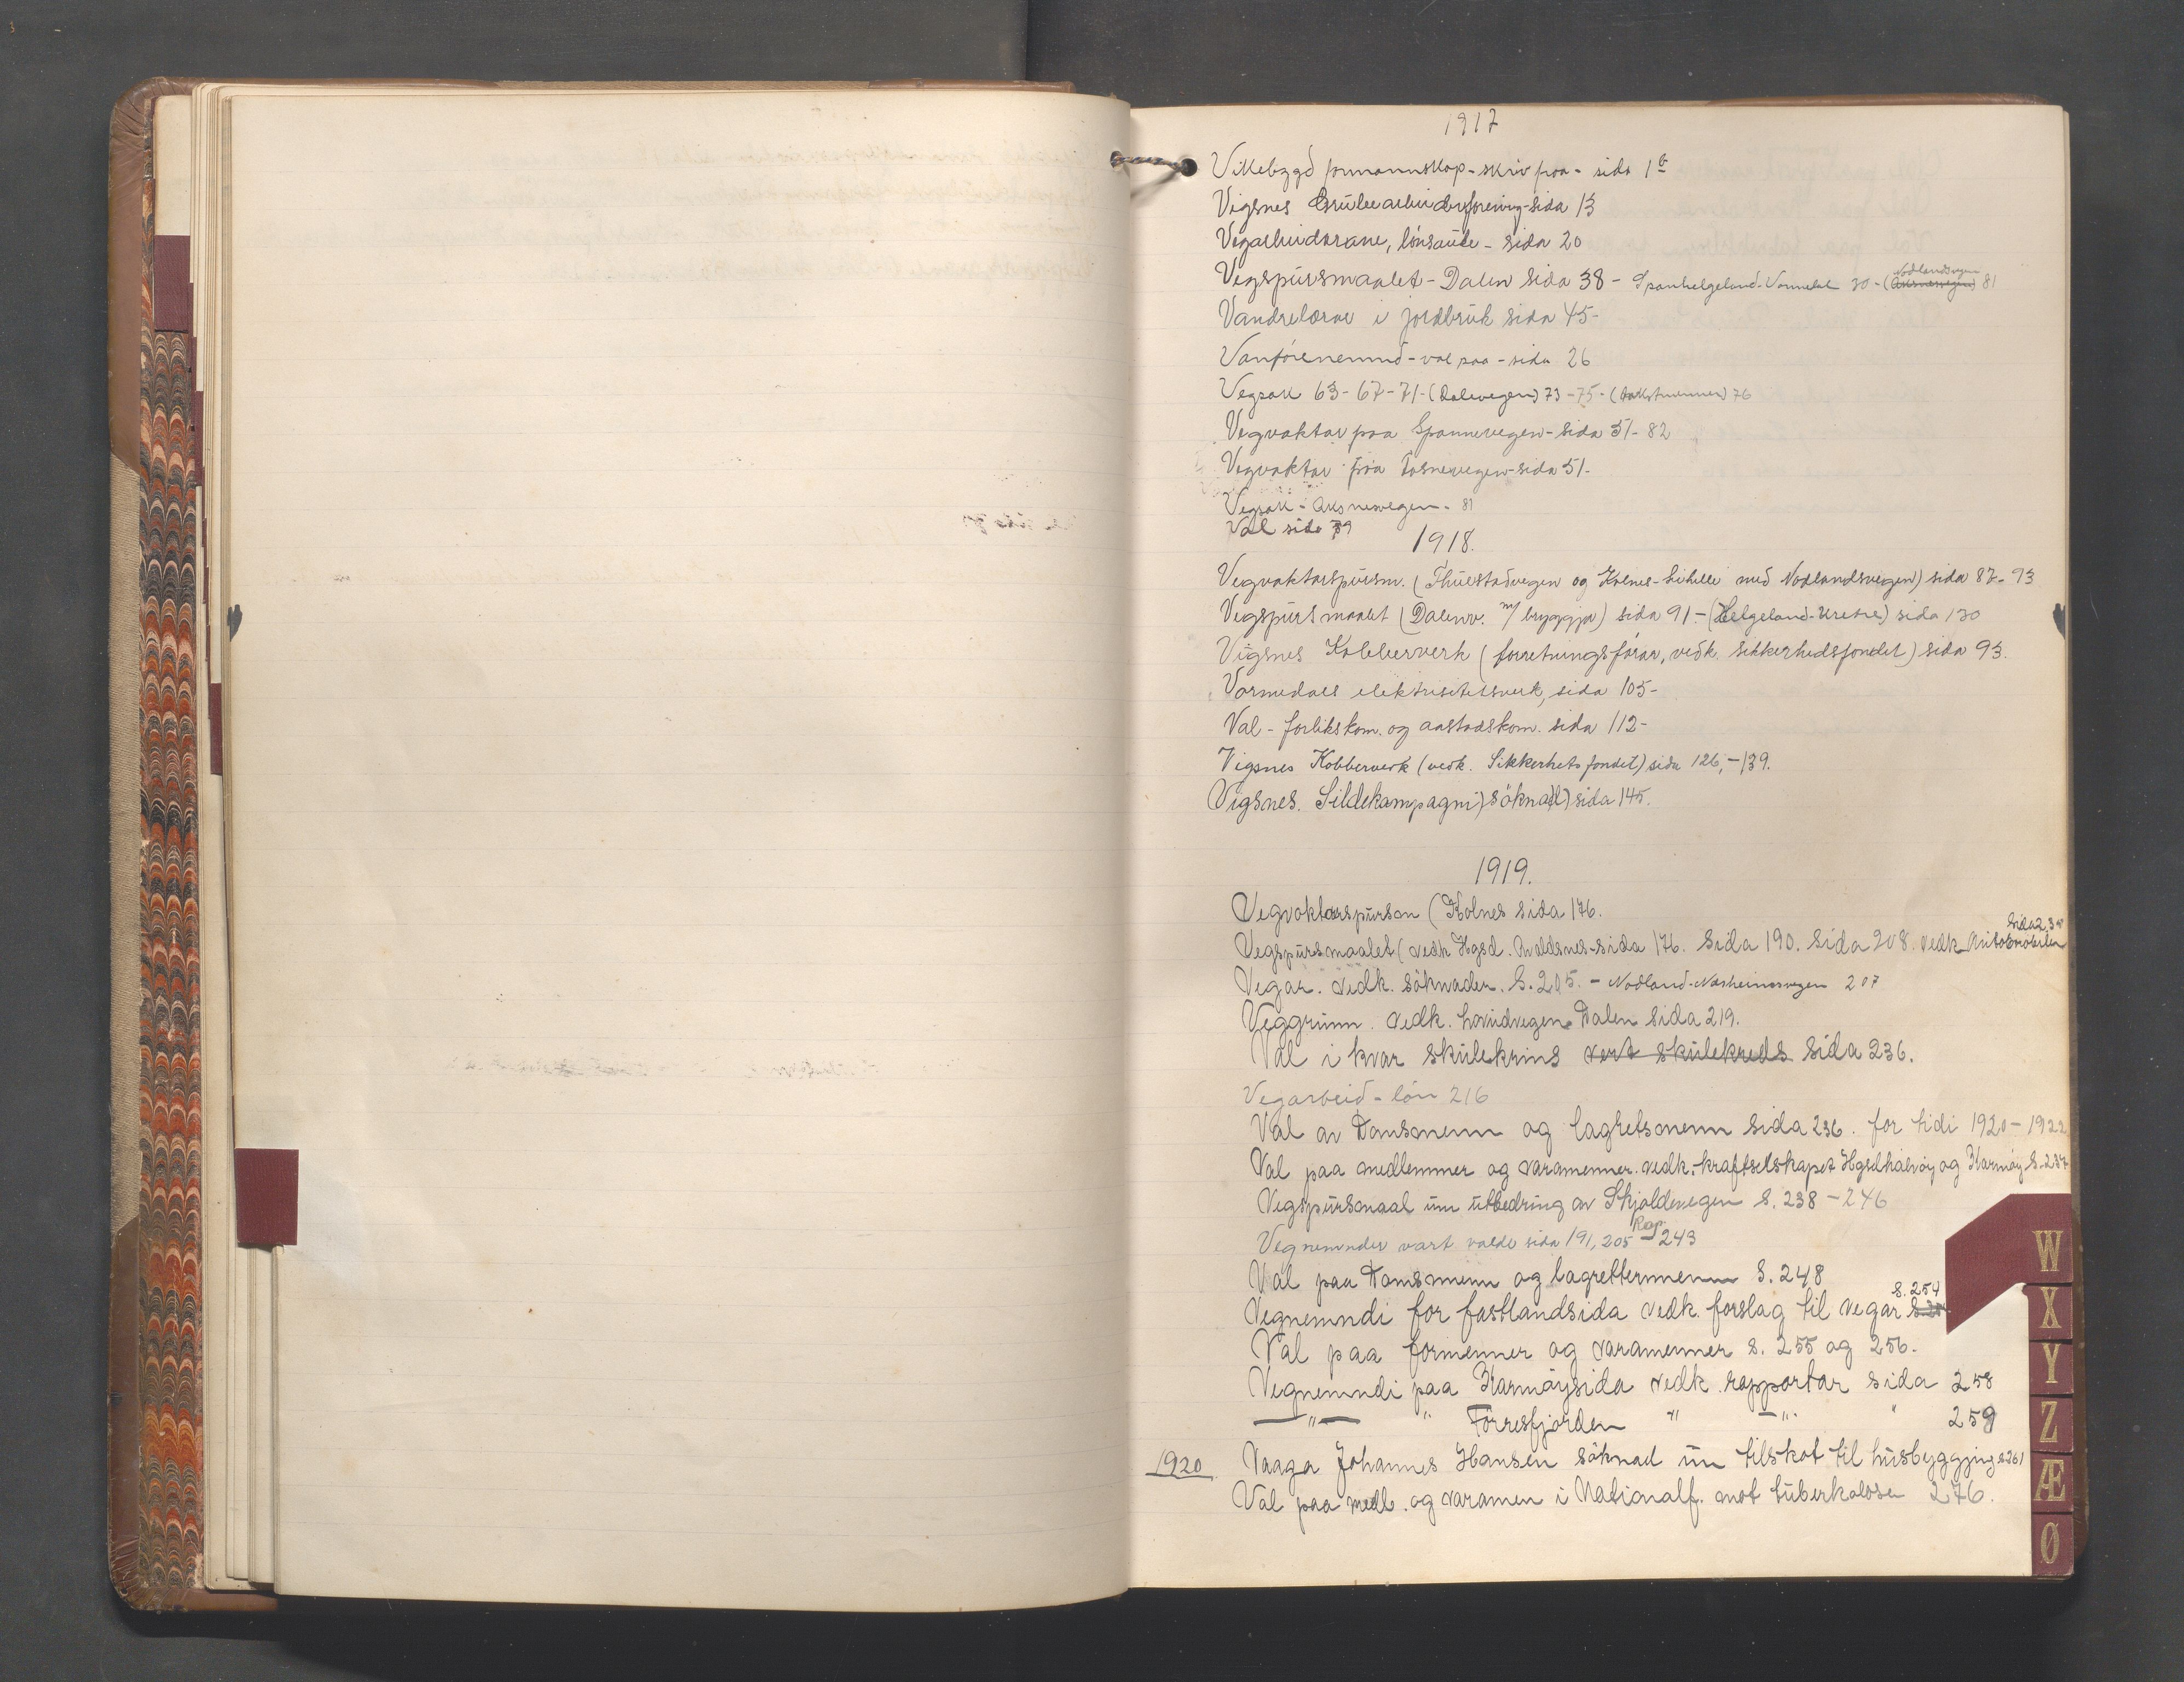 1917
Vikebygd formannskap - skriv fraa - sida 1 b
Vigsnes Grubearbeiderforening - sida 13
Vegarbeidarane, lönsauke - sida 20
Vegspursmaalet - Dalen sida 38 - Spanhelgeland - Vormedal 30 - (Aksnesvegen) Nodlandsvegen 81
Vandrelærar i jordbruk sida 45 -
Vanförenemnd - val paa - sida 26
Vegsak 63 - 67 - 71 - (Dalevegen) 73 - 75 - (takstmenner) 76
Vegvaktar paa Spannevegen - sida 51 - 82
Vegvaktar paa Fosnevegen - sida 51 -
Vegsak - Aksnesvegen - 81
Val sida 79
1918.
Vegvaktarspursm. (Thuestadvegen og Kolnes - Liknes med Nodlandsvegen) sida 87 - 93
Vegspursmaalet (Dalenv. m/ bryggja) sida 91 - (Helgeland - Kretse) sida 130
Vigsnes Kobberverk (forretningsförar, vedk. sikkerhedsfondet) sida 93.
Vormedals elektrisitetsverk, sida 105 -
Val - forlikskom. og aastadskom. sida 112 -
Vigsnes Kobberverk (vedk. Sikkerhetsfondet) sida 126, - 139.
Vigsnes. Sildekampagni) söknad) sida 145.
1919.
Vegvaktarspursm (Kolnes sida 176.
Vegspursmaalet (vedk Hgsd. Avaldsnes - sida 176. Sida 190. Sida 208. vedk Automobilen Sida 234
Vegar. vedk. söknader. S. 205. - Nodland - Norheimsvegen 207
Veggrunn. vedk. hovudvegen Dalen Sida 219.
Val i kvar skulekrins vert skulekreds Sida 236.
Vegarbeid - lön 216
Val av Domsmenn og lagretsmenn Sida 236. for tidi 1920 - 1922
Val paa medlemmer og varamenner. vedk. kraftselskapet Hgsdhalvöy og Karmöy S. 237
Vegspursmaal um utbedring av Skjoldevegen S. 238 - 246
Vegnemnder vart valde sida 191, 205 Rap 243
Val paa Domsmenn og lagrettemenn S. 248
Vegnemndi for fastlandsida vedk. forslag til vegar S. 254
Val paa formenner og varamenner s. 255 og 256.
Vegnemndi paa Karmöysida vedk. rapportar sida 258
— " — " Förresfjorden " — " — " 259
1920 Vaaga Johannes Hansen söknad um tilskot til husbyggjing s 261
Val paa medl. og varamen i Nationalf. mot tuberkolose 276.
W
X
Y
Z
Æ
Ø